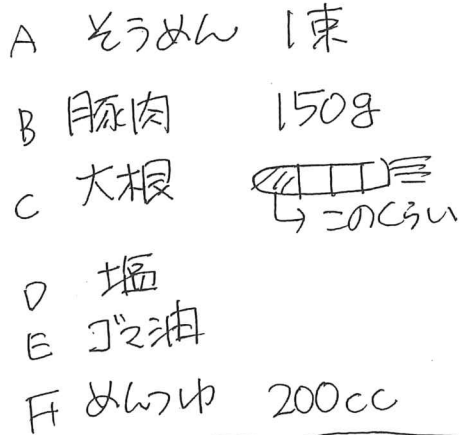 A そうめん 1束
B 豚肉 150g
C 大根
このくらい
D 塩
E ゴマ油
F めんつゆ 200cc